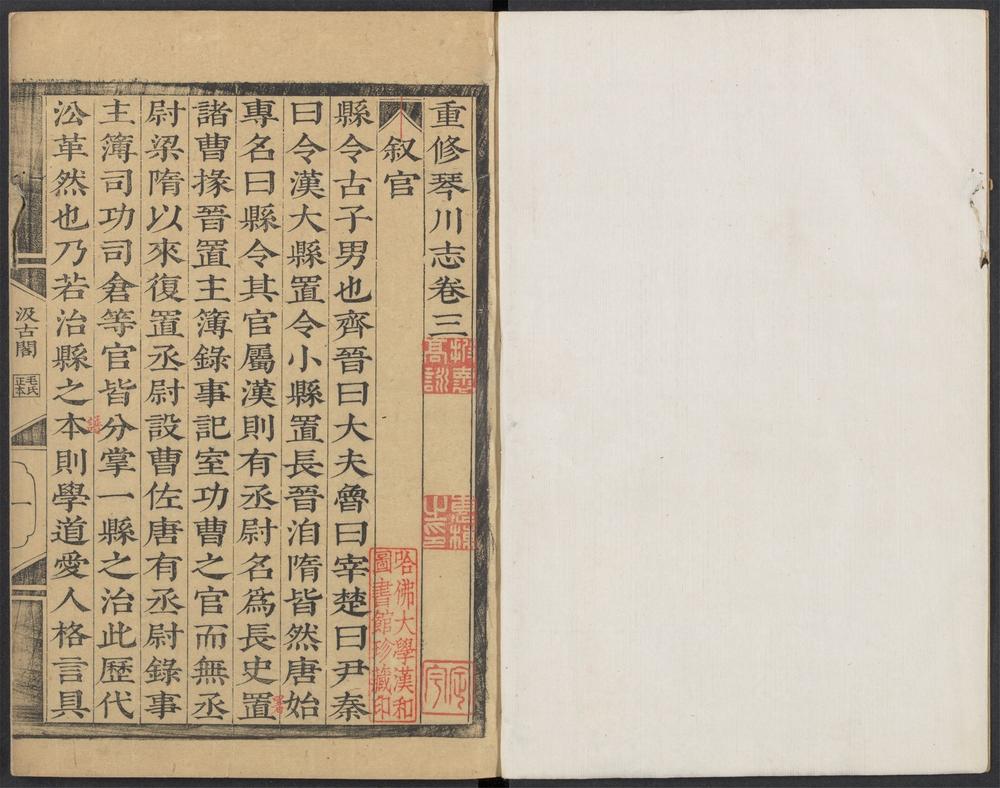 重修琴川志卷三
叙官
縣令古子男也齊晉曰大夫魯曰宰楚曰尹秦
曰令漢大縣置令小縣置長晉洎隋皆然唐始
專名曰縣令其官屬漢則有丞尉名爲長史置
諸曹掾晉置主簿錄事記室功曹之官而無丞
尉梁隋以來復置丞尉設曹佐唐有丞尉錄事
主簿司功司倉等官皆分掌一縣之治此歷代
㳂革然也乃若治縣之本則學道愛人格言具
汲古閣
毛氏
正本
一
惠棟
之印
定宇
哈佛大學漢和
圖書館珍藏印